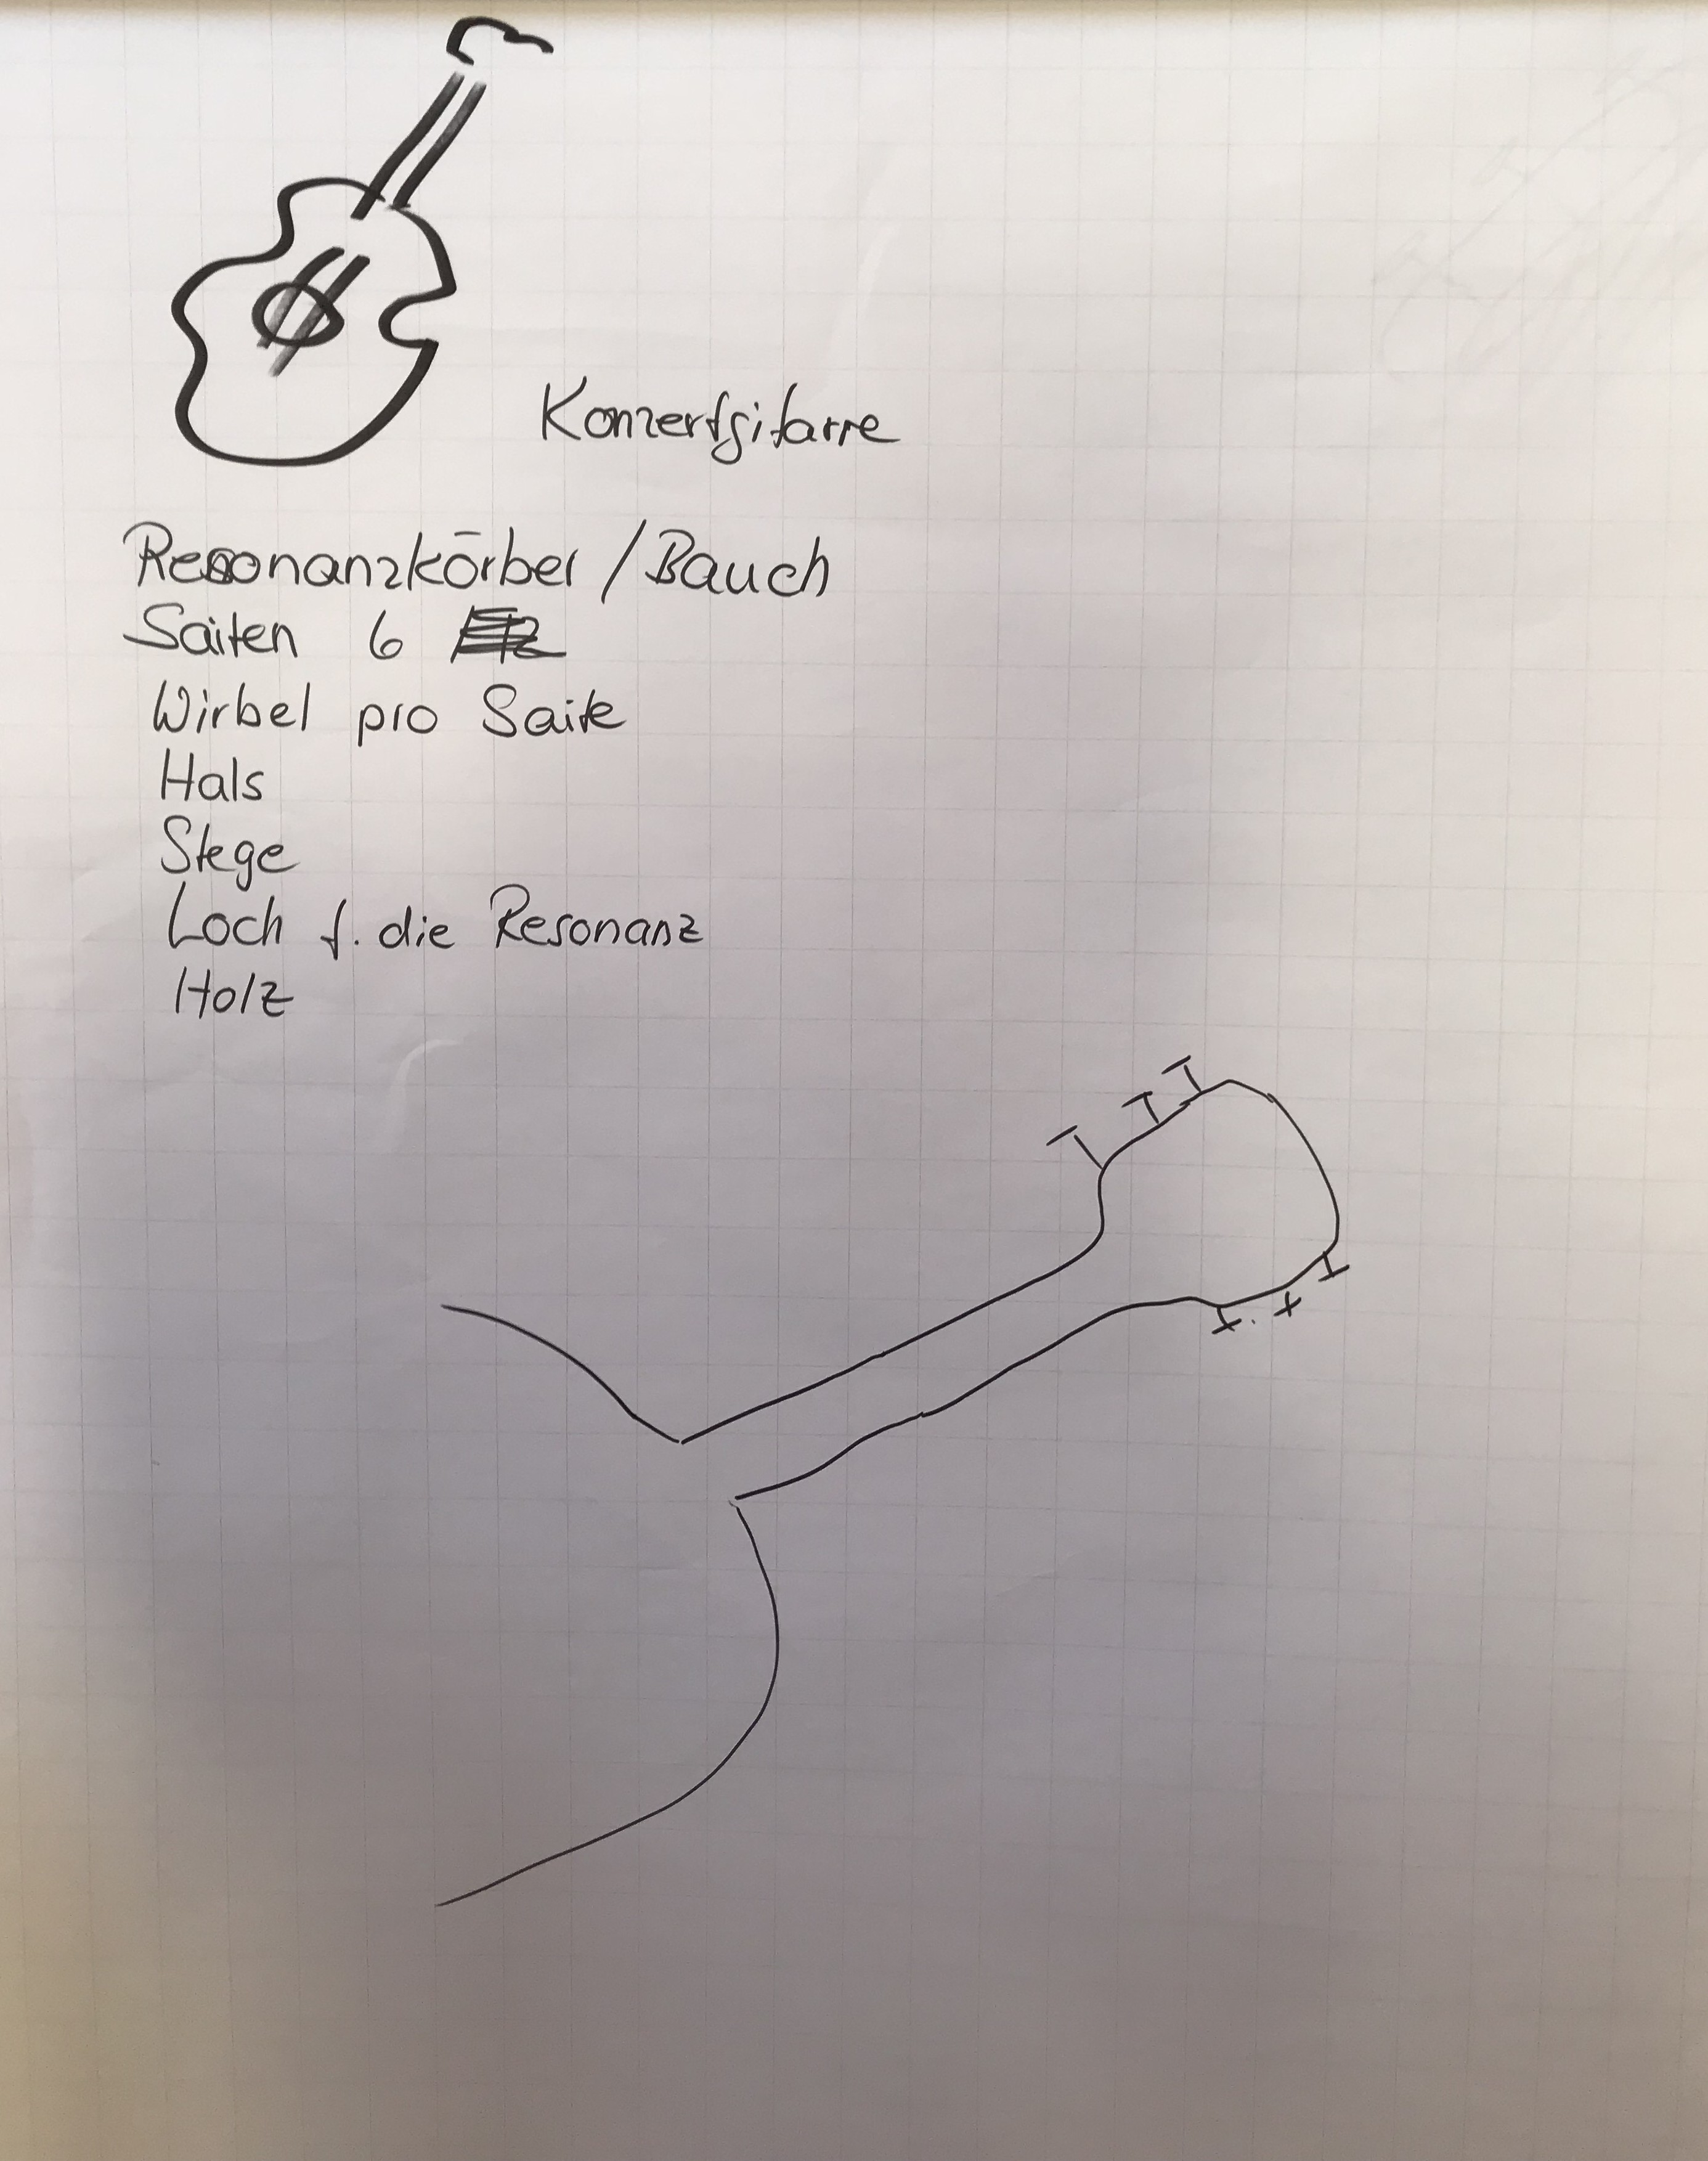 Konzertgitarre
Resonanzkörber / Bauch
Saiten 6
Wirbel pro Saite
Hals
Stege
Loch f. die Resonanz
Holz